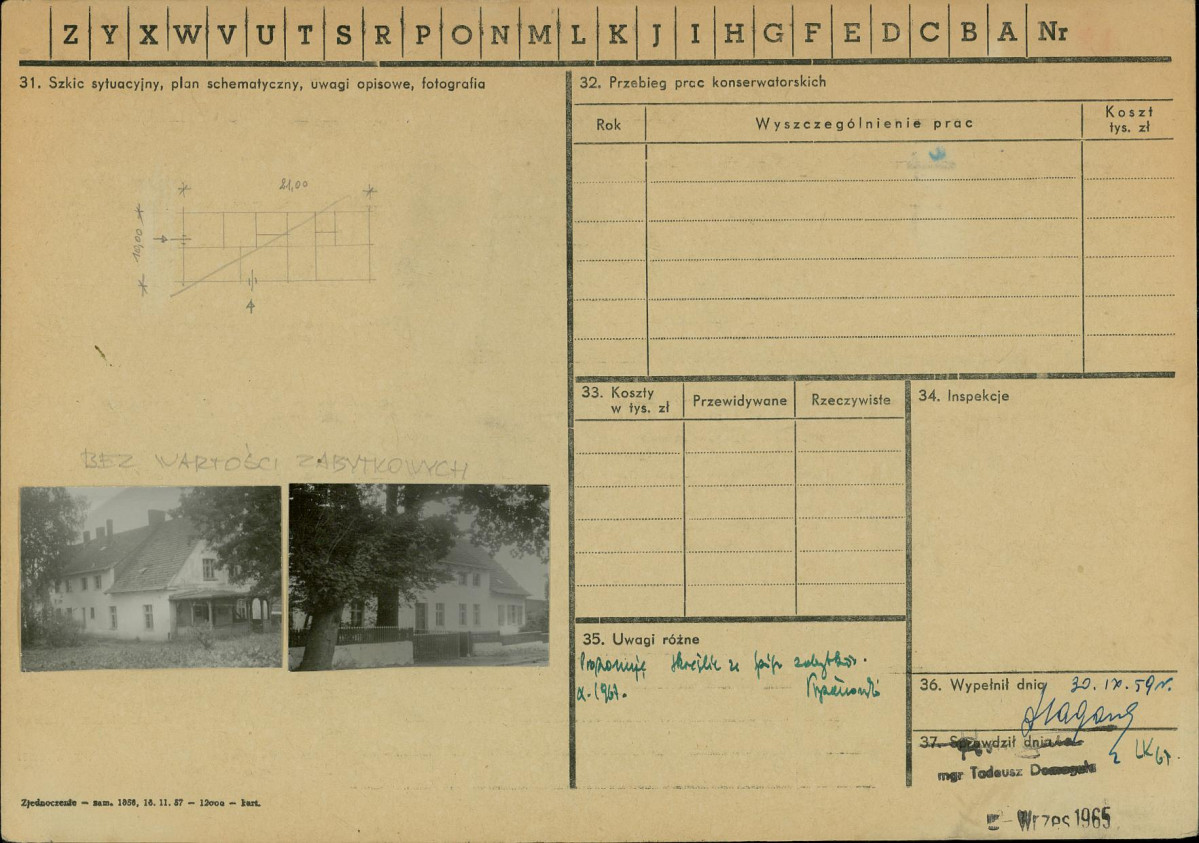 Z Y X W V U T S R P O N M L K J I H G F E D C B A Nr
31. Szkic sytuacyjny, plan schematyczny, uwagi opisowe, fotografia
21,00
10,00
BEZ WARTOŚCI ZABYTKOWYCH
Zjednoczenie — zam. 1058, 16. 11. 57 — 12000 — kart.
32. Przebieg prac konserwatorskich
Rok
Wyszczególnienie prac
Koszt
tys. zł
33. Koszty
w tys. zł
Przewidywane
Rzeczywiste
34. Inspekcje
35. Uwagi różne
Proponuję skreślić ze spisu zabytków.
X. 1967.
36. Wypełnił dnia 30. IX. 59 r.
37. Sprawdził dnia
mgr Tadeusz Domagała
Wrzes 1965